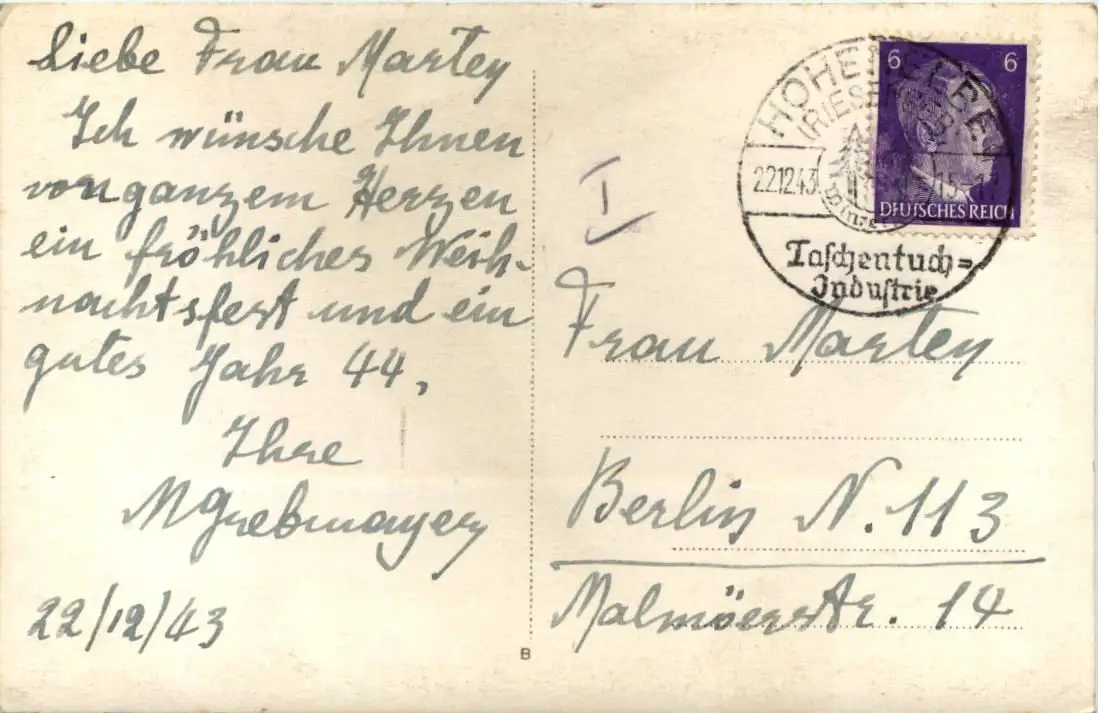 Liebe Frau Martey
Ich wünsche Ihnen
von ganzem Herzen
ein fröhliches Weih-
nachtsfest und ein
gutes Jahr 44,
Ihre
22/12/43
I
HOHENELBE
(RIESENGEB.)
22.12.43
6 6
DEUTSCHES REICH
Taschentuch=
Industrie
Frau Martey
Berlin N. 113
Malmöerstr. 14
B